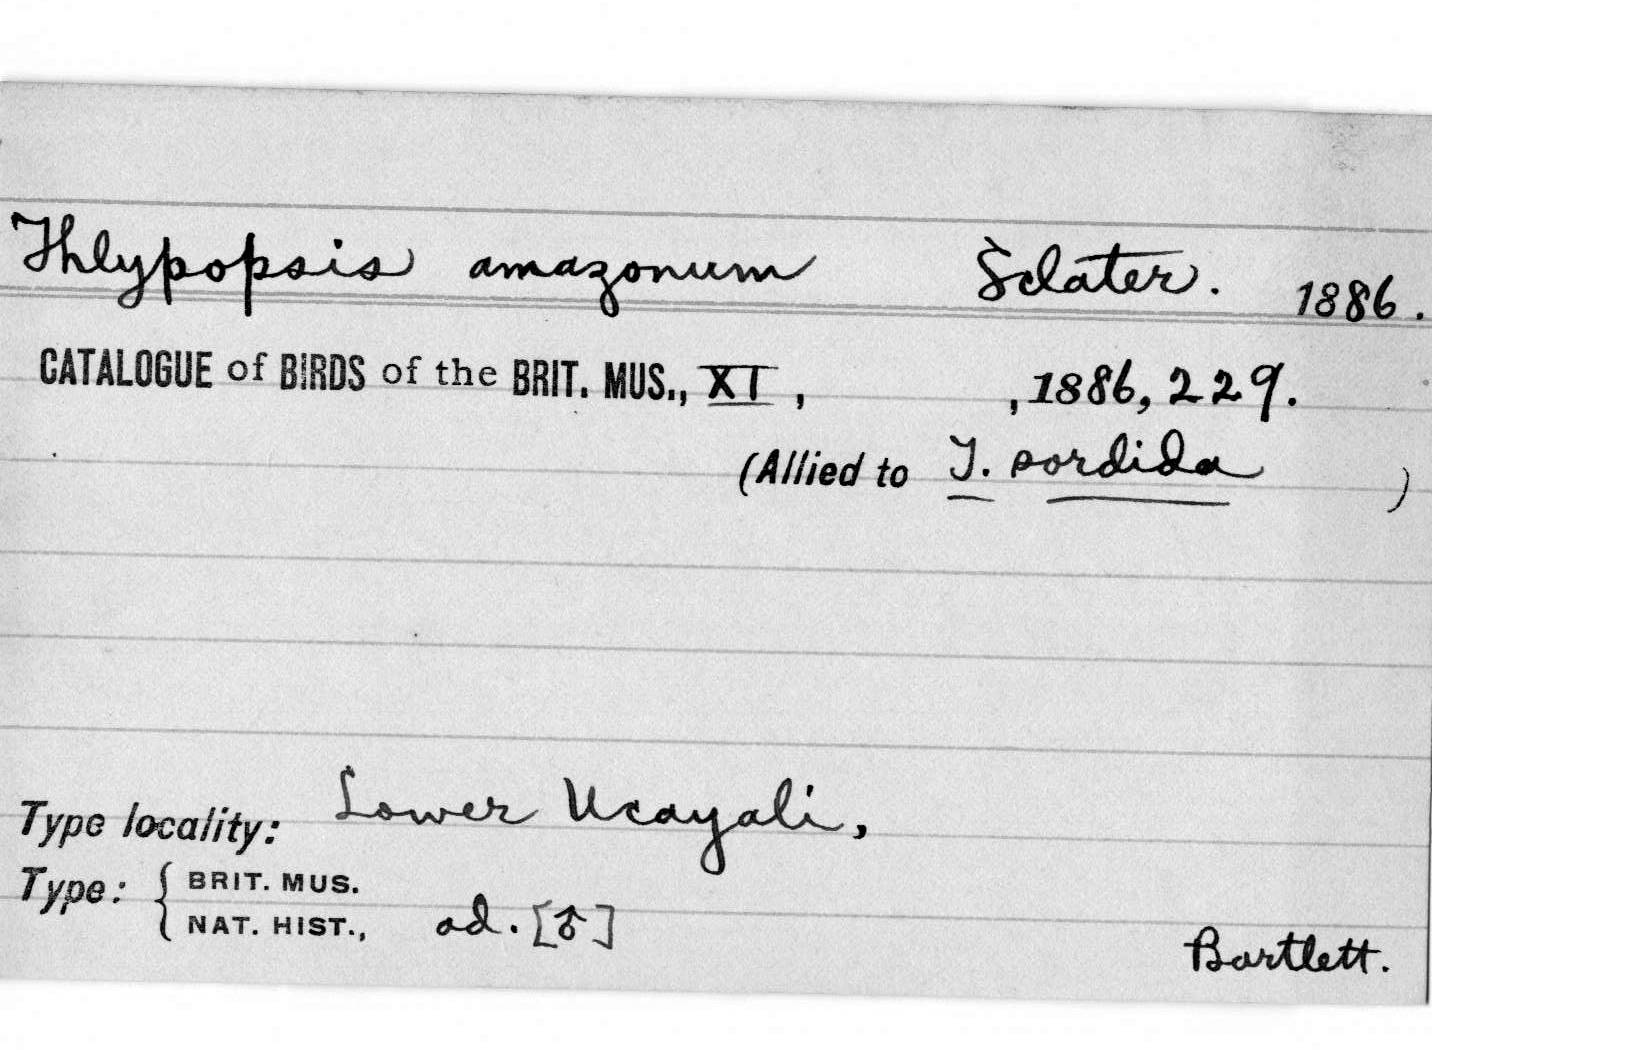 Thlypopsis amazonum Sclater. 1886.
CATALOGUE of BIRDS of the BRIT. MUS., XI, , 1886, 229.
(Allied to T. sordida )
Type locality: Lower Ucayali,
Type: { BRIT. MUS.
NAT. HIST., ad. [♂]
Bartlett.